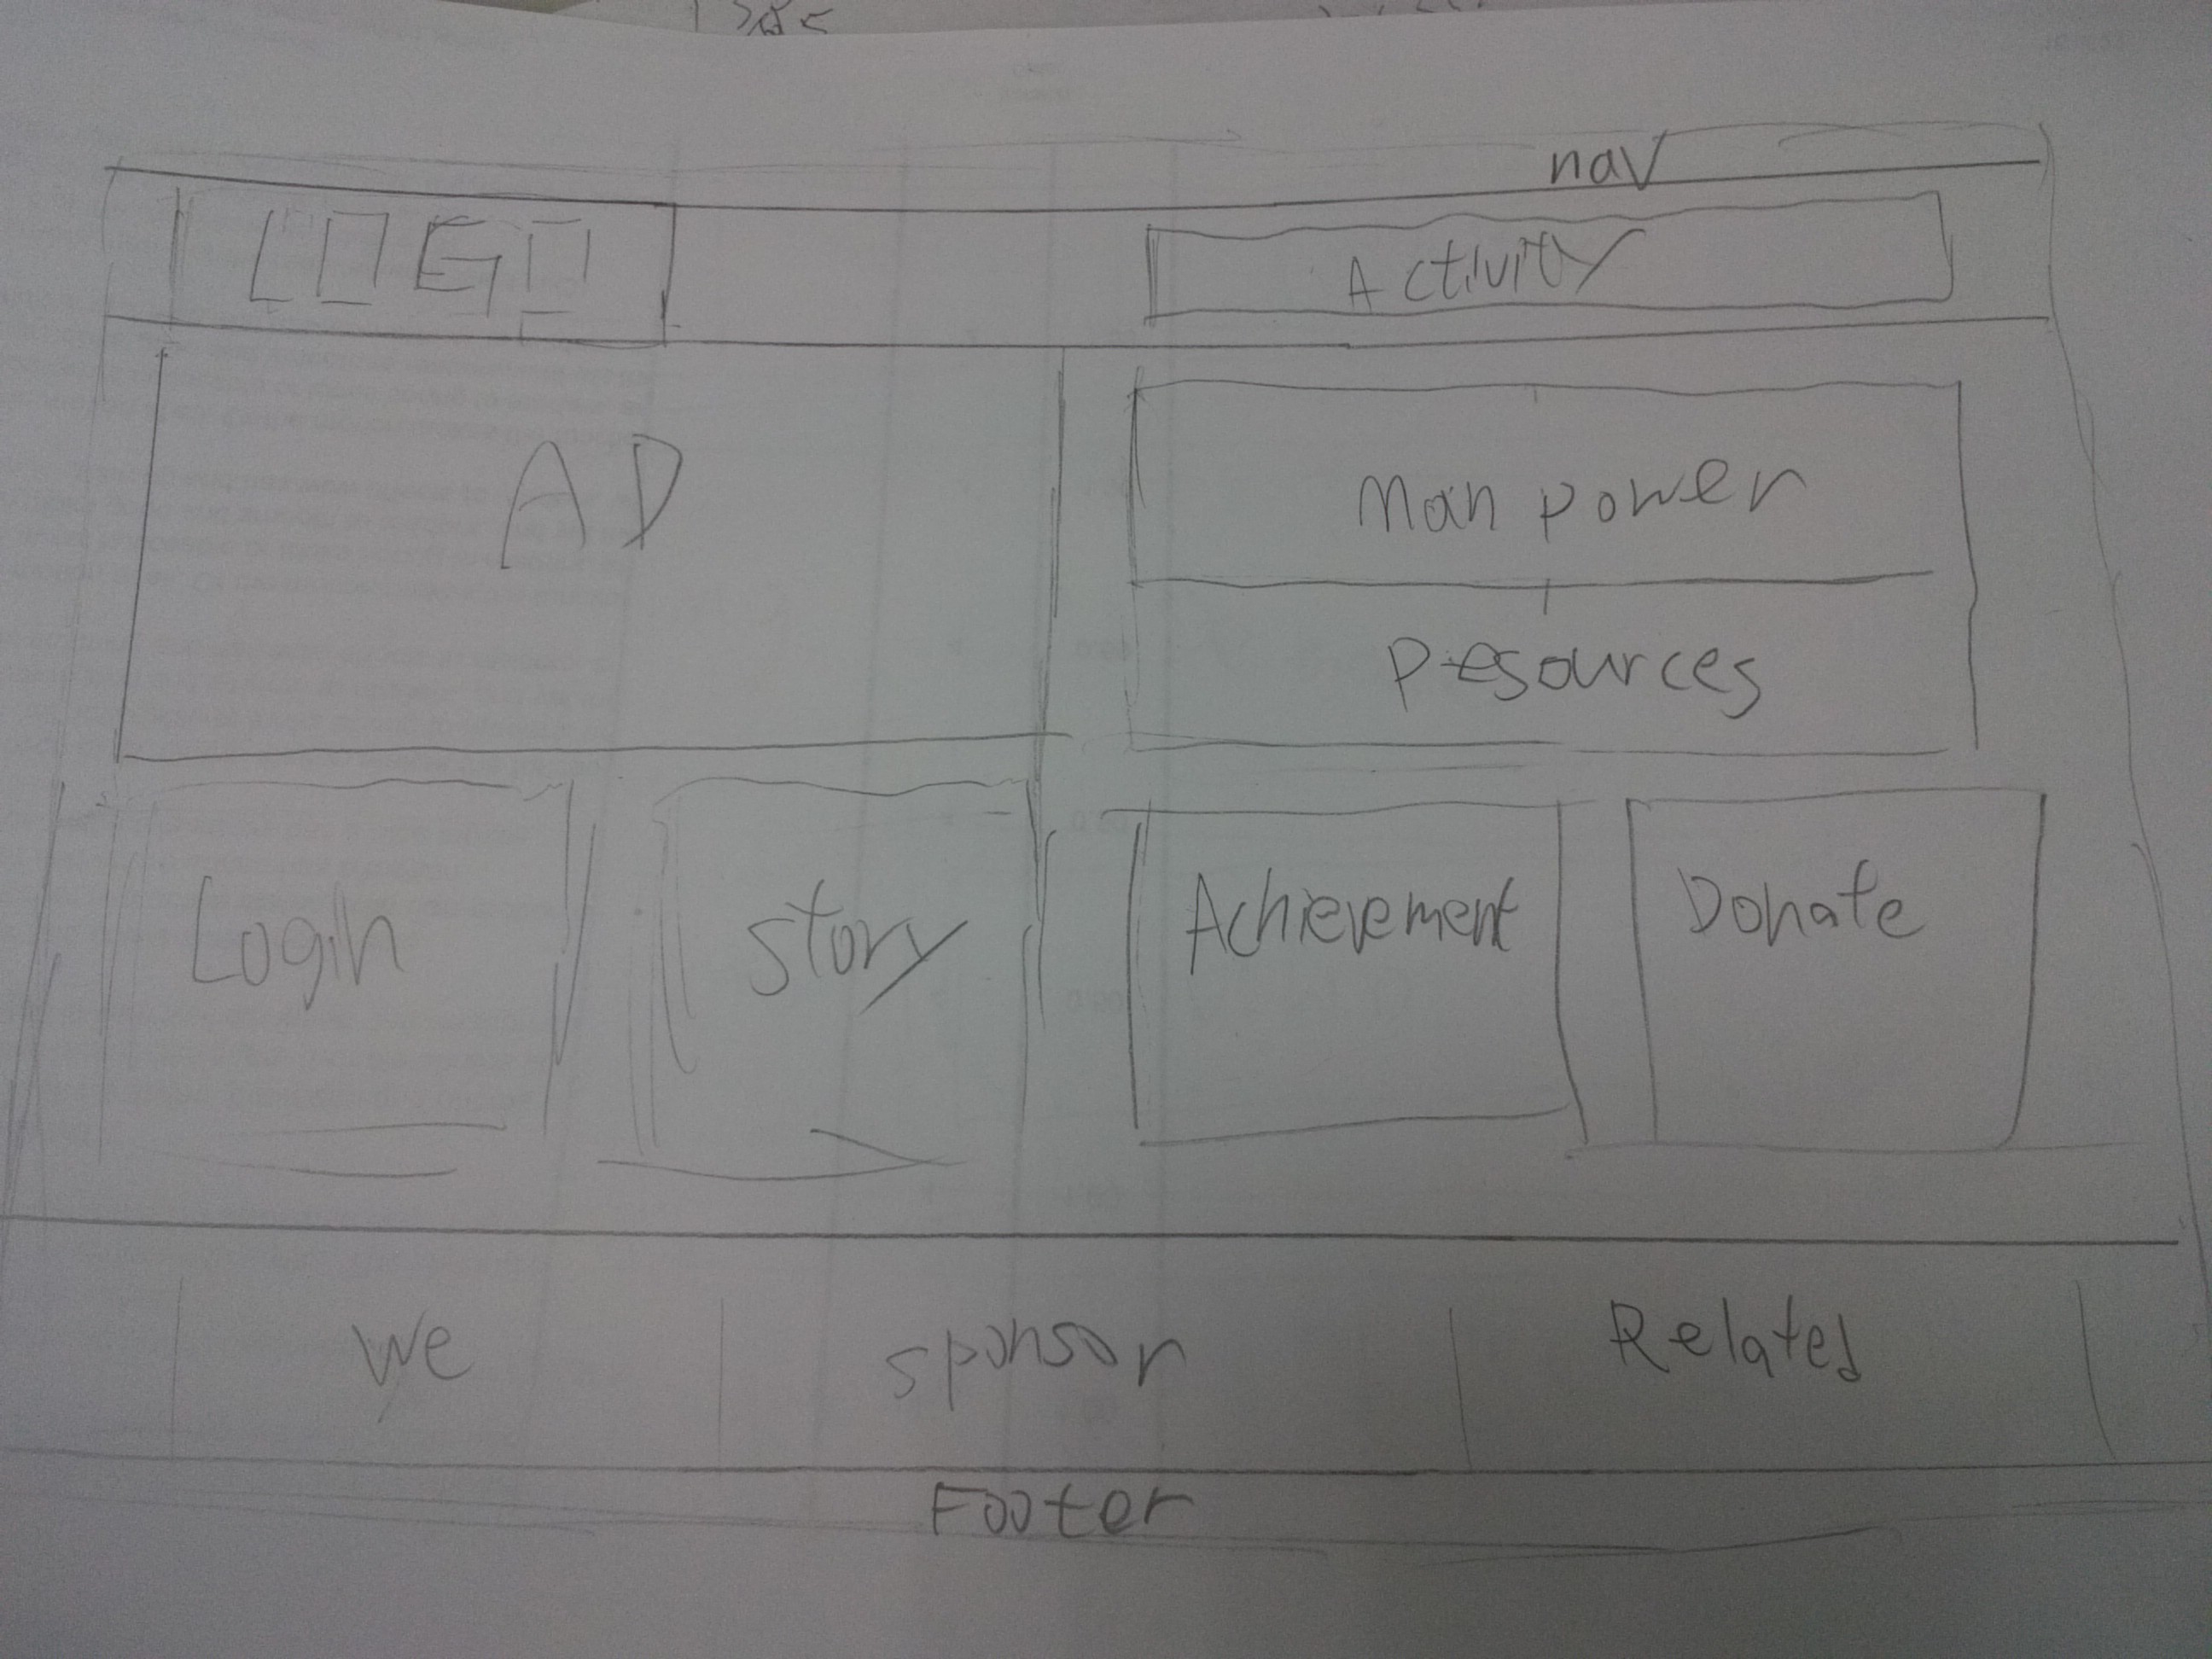 nav
LOGO
Activity
AD
Man power
Resources
Login
Story
Achievement
Donate
We
sponsor
Related
Footer